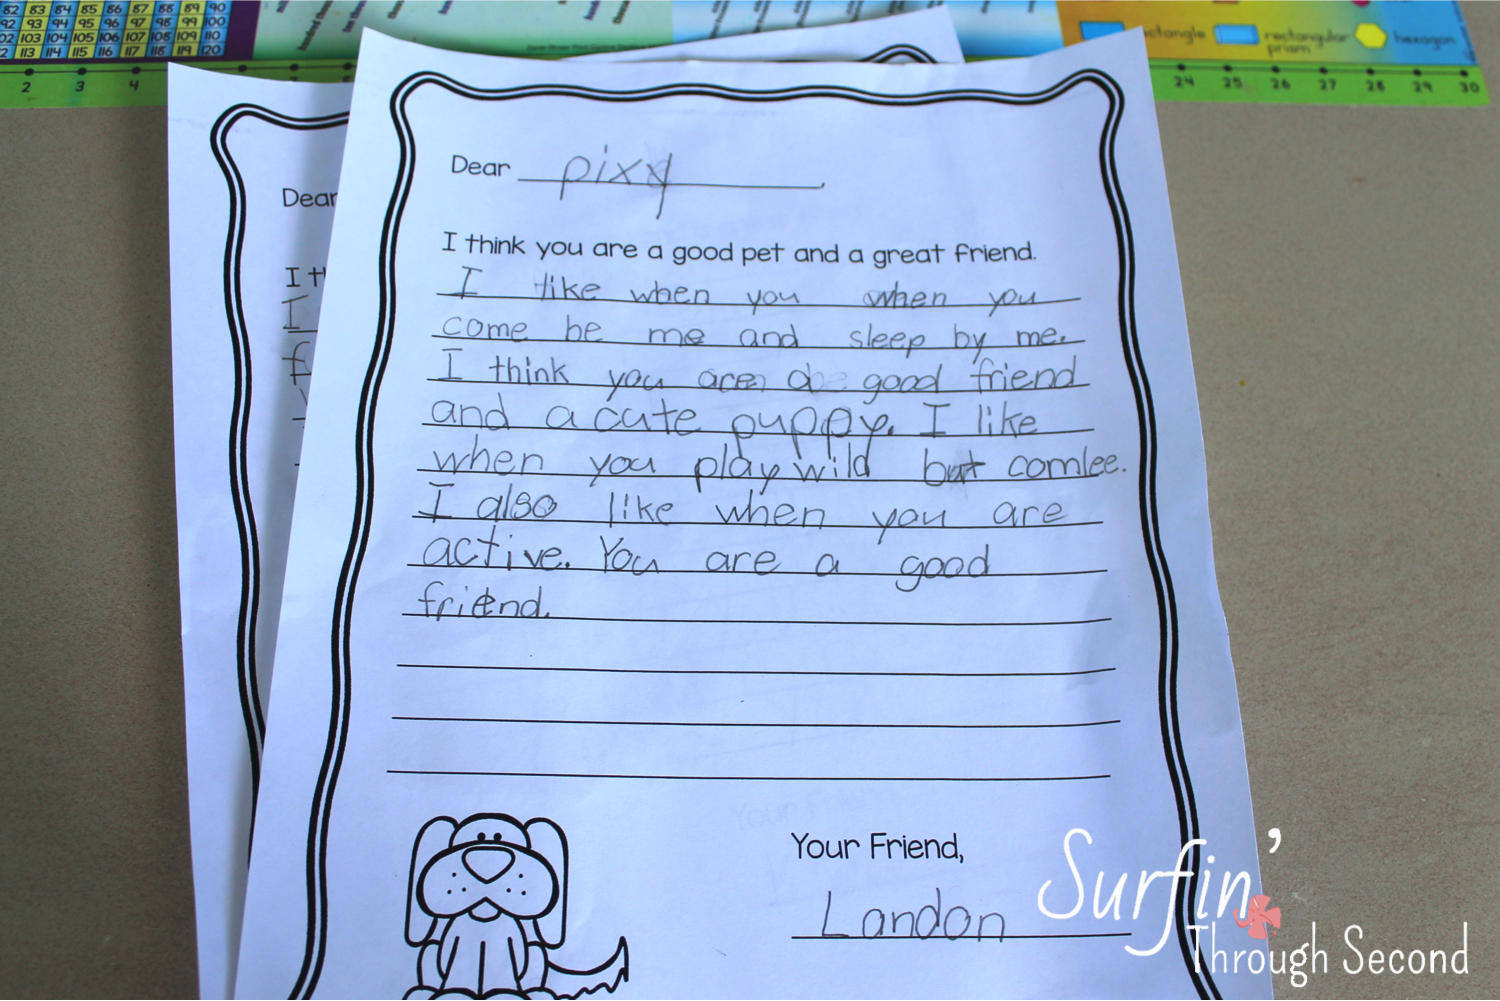 82 83 84 85 86 87 88 89 90
92 93 94 95 96 97 98 99 100
102 103 104 105 106 107 108 109 110
112 113 114 115 116 117 118 119 120
rectangular prism
hexagon
2 3 4 24 25 26 27 28 29 30
Dear
I
Dear pixy,
I think you are a good pet and a great friend.
I like when you when you
come be me and sleep by me.
I think you are a good friend
and a cute puppy. I like
when you play wild but comlee.
I also like when you are
active. You are a good
friend.
Your Friend,
Landon
Surfin'
Through Second